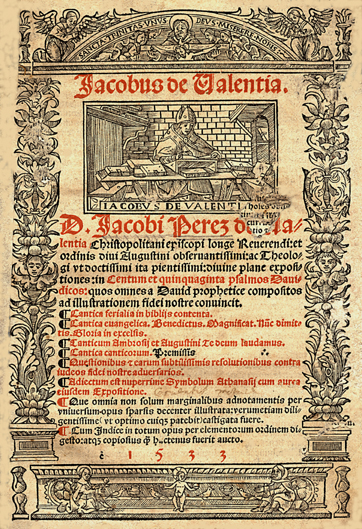 SANCTA TRINITAS UNUS DEUS MISERERE NOBIS
Jacobus de Valentia.
IACOBVS DE VALENTI
D. Jacobi Perez de Va-
lentia Christopolitani episcopi longe Reuerendi: et
ordinis diui Augustini obseruantissimi: ac Theolo-
gi vt doctissimi ita pientissimi: diuine plane exposi-
tiones: in Centum et quinquaginta psalmos Daui-
dicos: quos omnes a Dauid prophetice compositos
ad illustrationem fidei nostre conuincit.
¶ Cantica ferialia in biblijs contenta.
¶ Cantica euangelica. Benedictus. Magnificat. Nūc dimit-
tis. Gloria in excelsis.
¶ Canticum Ambrosij et Augustini Te deum laudamus.
¶ Cantica canticorum. Premissis
¶ Questionibus et earum subtilissimis resolutionibus contra
iudeos fidei nostre aduersarios.
¶ Adiectum est nuperrime Symbolum Athanasij cum aurea
eiusdem Expositione.
¶ Que omnia non solum marginalibus adnotamentis per
vniuersum opus sparsis decenter illustrata: verumetiam dili-
gentissime vt optimo cuiqȝ patebit castigata fuere.
¶ Cum Indice in totum opus per elementorum ordinem di-
gesto: atqȝ copiosius qȝ hactenus fuerit aucto.
1533